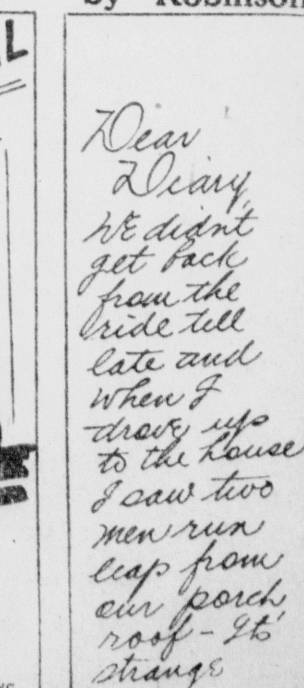 by Robinson
Dear
Diary,
We didn't
get back
from the
ride till
late and
when I
drove up
to the house
I saw two
men run
leap from
our porch
roof - Its
strange